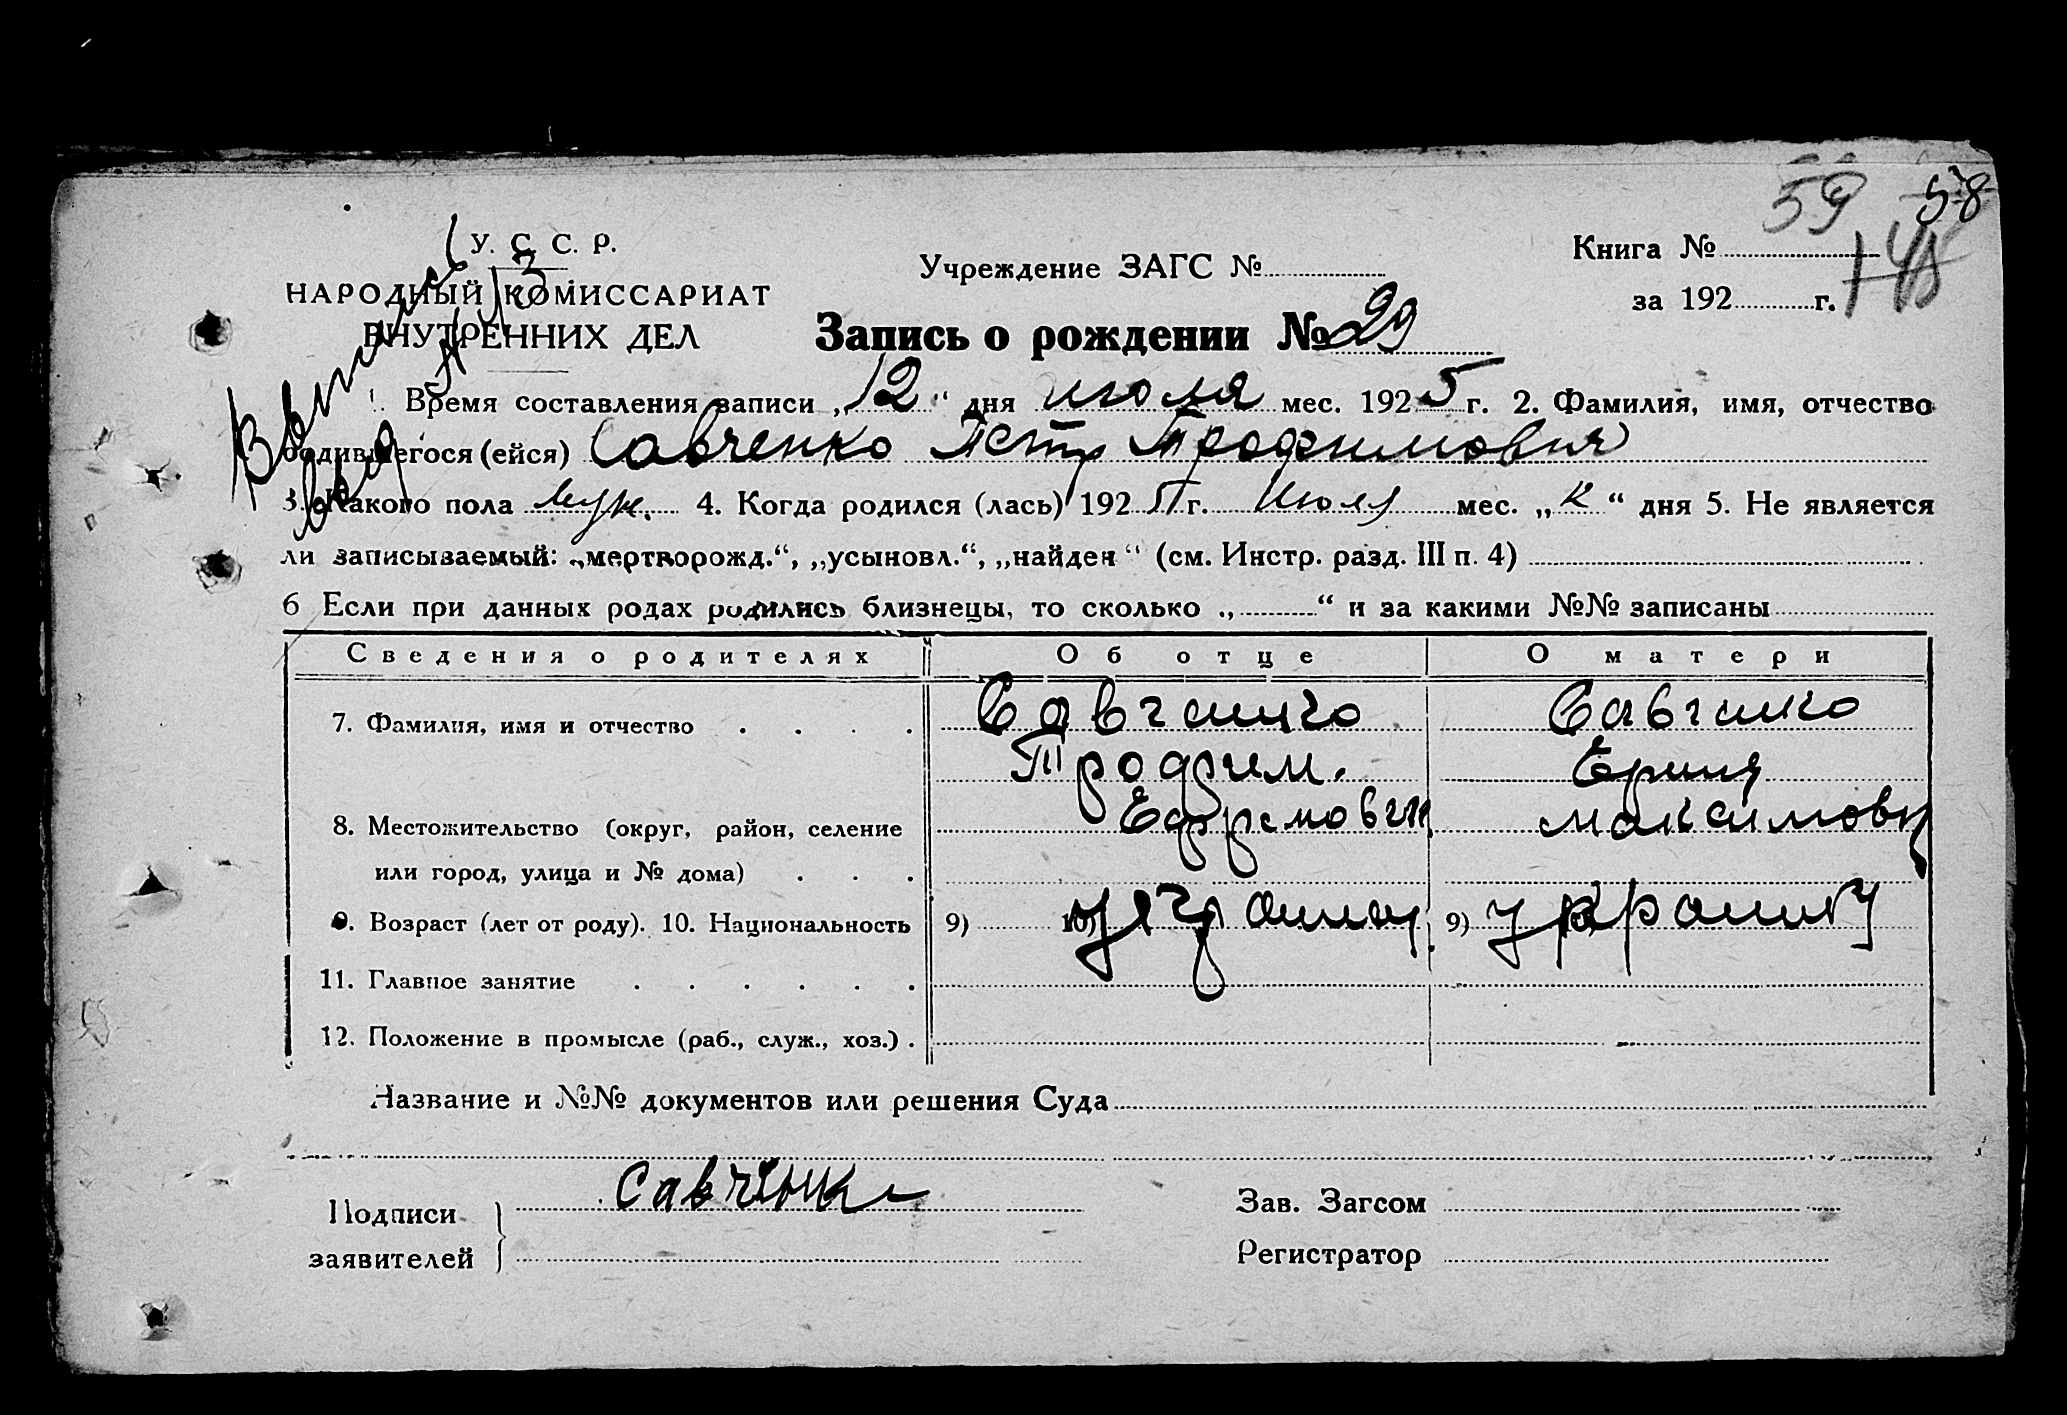 59 58
У. С. С. Р.
Книга №
Учреждение ЗАГС №
НАРОДНЫЙ КОМИССАРИАТ
за 192 г.
ВНУТРЕННИХ ДЕЛ
Запись о рождении № 29
1. Время составления записи „12“ дня июля мес. 1925 г. 2. Фамилия, имя, отчество
родившегося (ейся) Савченко Петр Трофимович
3. Какого пола муж. 4. Когда родился (лась) 192 г. Июля мес. „ “ дня 5. Не является
ли записываемый: „мертворожд.“, „усыновл.“, „найден“ (см. Инстр. разд. III п. 4)
6 Если при данных родах родились близнецы, то сколько „ “ и за какими №№ записаны
Сведения о родителях Об отце О матери
7. Фамилия, имя и отчество Савченко Савченко
Трофим.
8. Местожительство (округ, район, селение Ефремович Максимовн
или город, улица и № дома)
9. Возраст (лет от роду). 10. Национальность 9) 10) 9)
11. Главное занятие
12. Положение в промысле (раб., служ., хоз.)
Название и №№ документов или решения Суда
Подписи Савченко Зав. Загсом
заявителей Регистратор